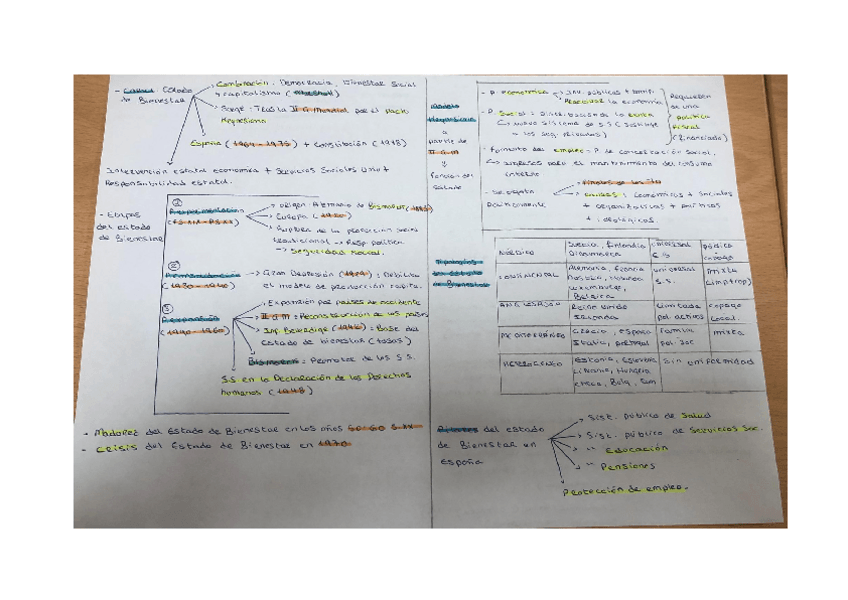 Estado
de Bienestar
Combinación: Democracia, Bienestar Social
y capitalismo
Surge: Tras la II G Mundial por el Pacto
Keynesiano
España (1964-1975) + Constitución (1978)
Intervención estatal economía + Servicios Sociales Univ +
Responsabilidad estatal.
- Etapas
del estado
de Bienestar
①
Experimentación
origen: Alemania de Bismarck
Europa
Ruptura de la protección social
tradicional → Resp. política
→ Seguridad Social.
②
Consolidación
(1930-1940)
Gran Depresión : Debilita
el modelo de protección
③
Expansión
Expansión por países de occidente
II G M : Reconstrucción de los países
Inf. Beveridge : Base del
estado de bienestar (todos)
Bismarck : Promotor de las S.S.
S.S en la Declaración de los Derechos
humanos (1948)
- Madurez del Estado de Bienestar en los años 50-60 S.XX
- Crisis del Estado de Bienestar en 1970
Modelo
Keynesiano
a
partir de
II G M
función del
estado
- P. económica → Inv. públicas +
Reactivar la economía
- P. Social : Distribución de la renta
nuevo sistema de S.S (sustituye
a los seg. privados)
Requieren
de una
política
fiscal
(financiada)
- Fomento del empleo : P de concertación social.
ingresos para el mantenimiento del consumo
interno
causas : Económicas + sociales
+ organizativas + políticas
+ ideológicas
Tipologías
del estado
de Bienestar
NÓRDICO
Suecia, Finlandia
Dinamarca
universal
pública
CONTINENTAL
Alemania, Francia
Austria, Holanda
Luxemburgo,
Bélgica
universal
S.S.
mixta
ANGLOSAJÓN
Reino Unido
Irlanda
limitada
pol activos
copago
local.
MEDITERRÁNEO
Grecia, España
Italia, Portugal
Familia
pol. soc
mixta
HETEROGÉNEO
Estonia, Eslovenia
Lituania, Hungría
Sin uniformidad
Pilares del estado
de Bienestar en
España
Sist. público de Salud
Sist. público de Servicios Soc.
" Educación
" Pensiones
Protección de empleo.